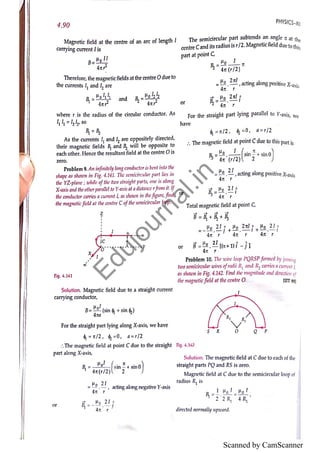 4.90
PHYSICS-XII
Magnetic field at the centre of an arc of length l
carrying current I is
B = μ₀ I l / 4π r²
Therefore, the magnetic fields at the centre O due to
the currents I₁ and I₂ are
B₁ = μ₀ I₁ l₁ / 4π r² and B₂ = μ₀ I₂ l₂ / 4π r²
where r is the radius of the circular conductor. As
I₁ l₁ = I₂ l₂, so
B₁ = B₂
As the currents I₁ and I₂ are oppositely directed,
their magnetic fields B₁ and B₂ will be opposite to
each other. Hence the resultant field at the centre O is
zero.
Problem 9. An infinitely long conductor is bent into the
shape as shown in Fig. 4.161. The semicircular part lies in
the YZ-plane ; while of the two straight parts, one is along
X-axis and the other parallel to Y-axis at a distance r from it. If
the conductor carries a current I, as shown in the figure, find
the magnetic field at the centre C of the semicircular loop.
C
O
Fig. 4.161
Solution. Magnetic field due to a straight current
carrying conductor,
B = μ₀ I / 4π a (sin φ₁ + sin φ₂)
For the straight part lying along X-axis, we have
φ₁ = π/2, φ₂ = 0, a = r/2
∴ The magnetic field at point C due to the straight
part along X-axis,
B₁ = μ₀ I / 4π (r/2) (sin π/2 + sin 0)
= μ₀ / 4π · 2I / r, acting along negative Y-axis
or
The semicircular part subtends an angle π at the
centre C and its radius is r/2. Magnetic field due to this
part at point C.
B₂ = μ₀ / 4π · I / (r/2) π
= μ₀ / 4π · 2πI / r, acting along positive X-axis
or
For the straight part lying parallel to Y-axis, we
have
φ₁ = π/2, φ₂ = 0, a = r/2
∴ The magnetic field at point C due to this part is
B₃ = μ₀ / 4π · I / (r/2) (sin π/2 + sin 0)
or
Total magnetic field at point C,
or
Problem 10. The wire loop PQRSP formed by joining
two semicircular wires of radii R₁ and R₂ carries a current I,
as shown in Fig. 4.162. Find the magnitude and direction of
the magnetic field at the centre O.
S R O Q P
Fig. 4.162
Solution. The magnetic field at C due to each of the
straight parts PQ and RS is zero.
Magnetic field at C due to the semicircular loop of
radius R₁ is
B₁ = 1/2 · μ₀ I / 2 R₁ = μ₀ I / 4 R₁,
directed normally upward.
Scanned by CamScanner